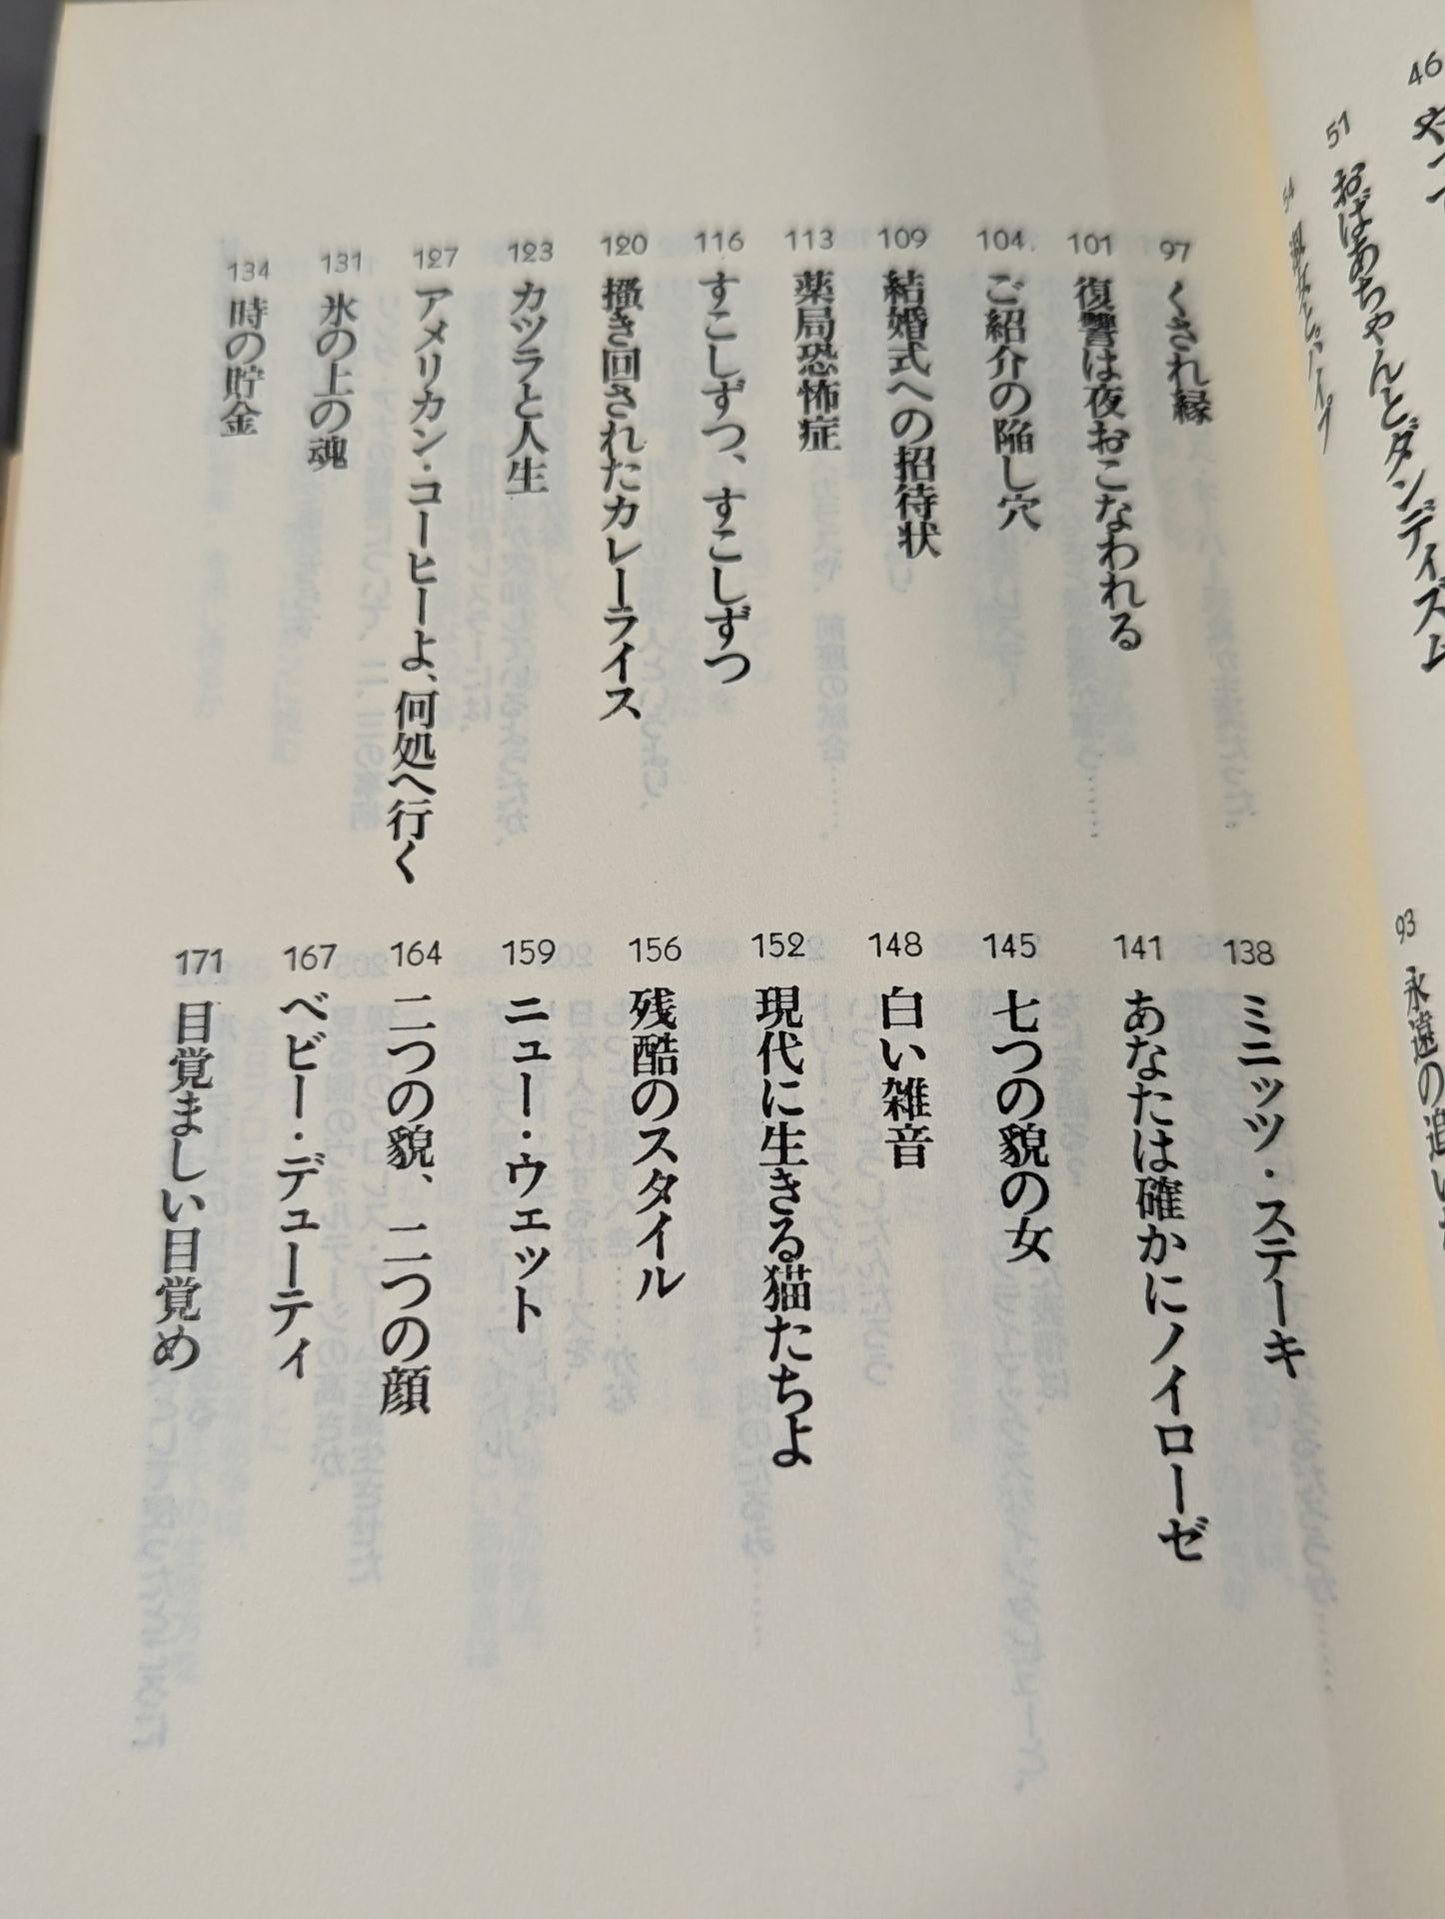 46
51 おばあちゃんとダンディズム
54
93 永遠の追い
97 くされ縁
101 復讐は夜おこなわれる
104 ご紹介の陥し穴
109 結婚式への招待状
113 薬局恐怖症
116 すこしずつ、すこしずつ
120 掻き回されたカレーライス
123 カツラと人生
127 アメリカン・コーヒーよ、何処へ行く
131 氷の上の魂
134 時の貯金
138 ミニッツ・ステーキ
141 あなたは確かにノイローゼ
145 七つの貌の女
148 白い雑音
152 現代に生きる猫たちよ
156 残酷のスタイル
159 ニュー・ウェット
164 二つの貌、二つの顔
167 ベビー・デューティ
171 目覚ましい目覚め